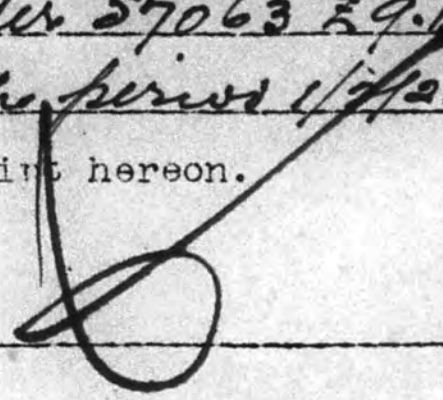 27063 £9.
period 1/7/2
hereon.